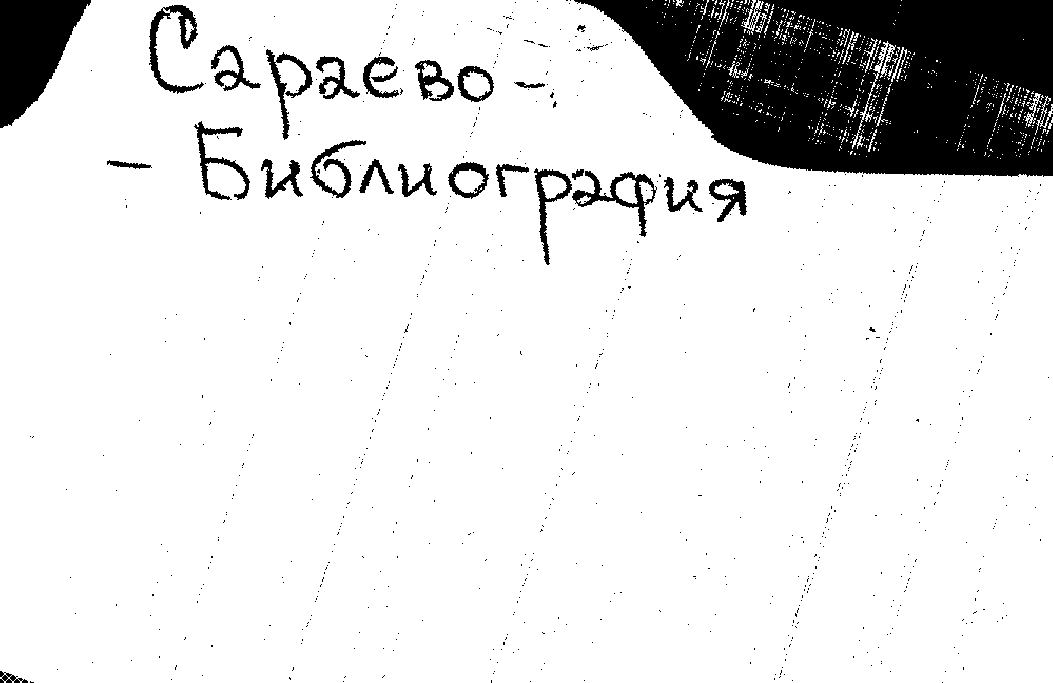 Сараево -
- Библиография